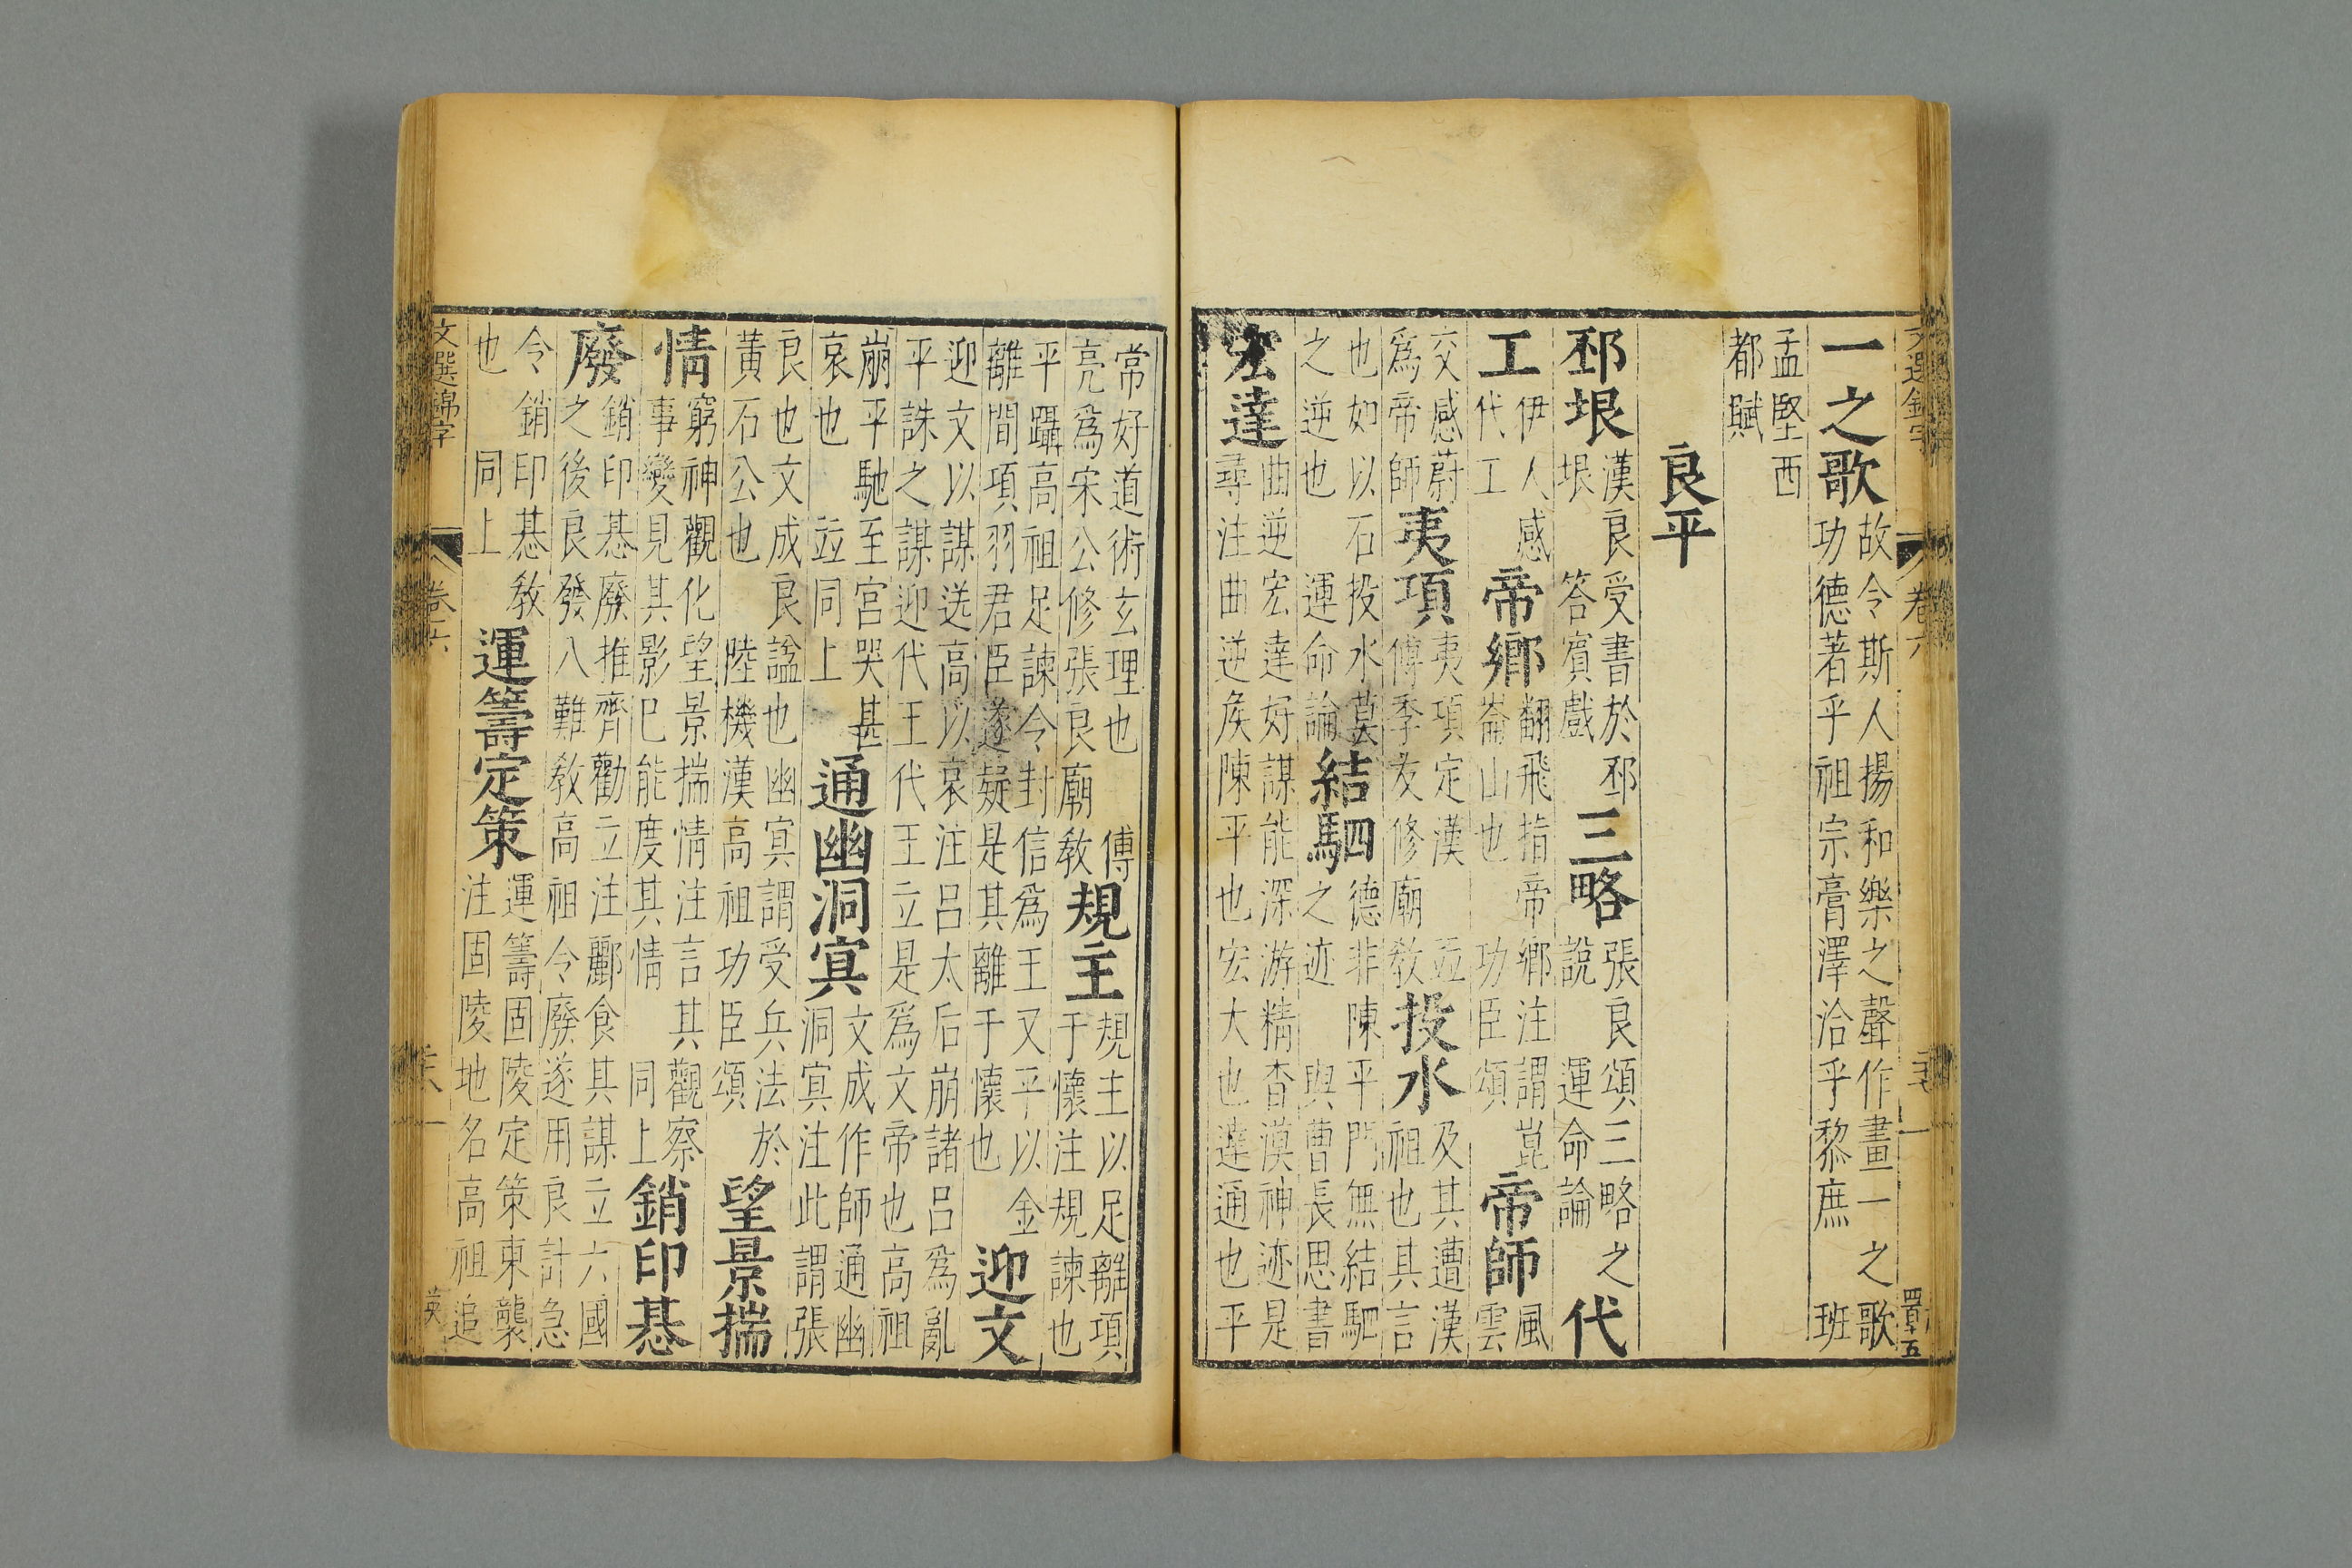 文選錦字 卷六
一之歌故令斯人揚和樂之聲作畫一之歌功德著乎祖宗膏澤洽乎黎庶 班
孟堅西都賦
良平
邳垠漢良受書於邳垠 答賓戲三略張良頌三略之說 運命論代
工伊人感代工帝鄉翻飛指帝鄉注謂崑崙山也 功臣頌帝師風雲
交感蔚爲帝師夷項夷項定漢 並傅季友修廟教投水及其遭漢祖也其言
也如以石投水莫之逆也 運命論結駟德非陳平門無結駟之迹 與曹長思書
宏達曲逆宏達好謀能深游精杳漠神迹是尋注曲逆矦陳平也宏大也達通也平
常好道術玄理也 傅亮爲宋公修張良廟教規主規主以足離項于懷注規諫也
平躡高祖足諫令封信爲王又平以金離間項羽君臣遂疑是其離于懷也迎文
迎文以謀送高以哀注呂太后崩諸呂爲亂平誅之謀迎代王代王立是爲文帝也高祖
崩平馳至宮哭甚哀也 並同上通幽洞冥文成作師通幽洞冥注此謂張
良也文成良諡也幽冥謂受兵法於黃石公也 陸機漢高祖功臣頌望景揣
情窮神觀化望景揣情注言其觀察事變見其影已能度其情 同上銷印惎
廢銷印惎廢推齊勸立注酈食其謀立六國之後良發八難教高祖令廢遂用良計急
令銷印惎教也 同上運籌定策運籌固陵定策東襲注固陵地名高祖追
文選錦字 卷六